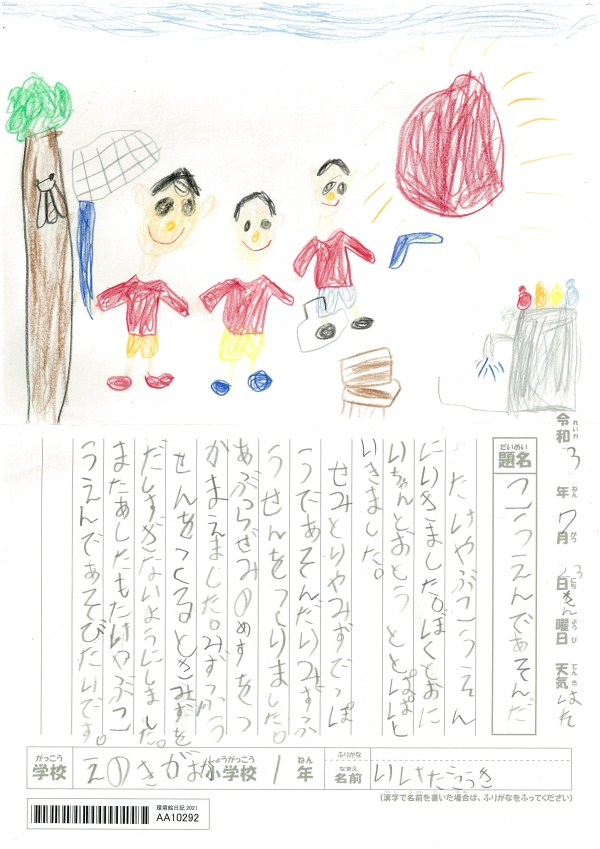 令和3年7月23日きん曜日 天気はれ
れいわ ねん がつ にち ようび てんき
だいめい
題名 こうえんであそんだ
たけやぶこうえん
にいきました。ぼくとおに
いちゃんとおとうととぱぱと
いきました。
せみとりやみずでっぽ
うであそんだりみずふ
うせんをつくりました。
あぶらぜみのめすをつ
かまえました。みずふう
せんをつくるときみずを
だしすぎないようにしました。
またあしたもたけやぶこ
うえんであそびたいです。
がっこう しょうがっこう ねん ふりがな
学校 えのきがおか小学校 1年 なまえ
名前
(漢字で名前を書いた場合は、ふりがなをふってください)
環境絵日記 2021
AA10292